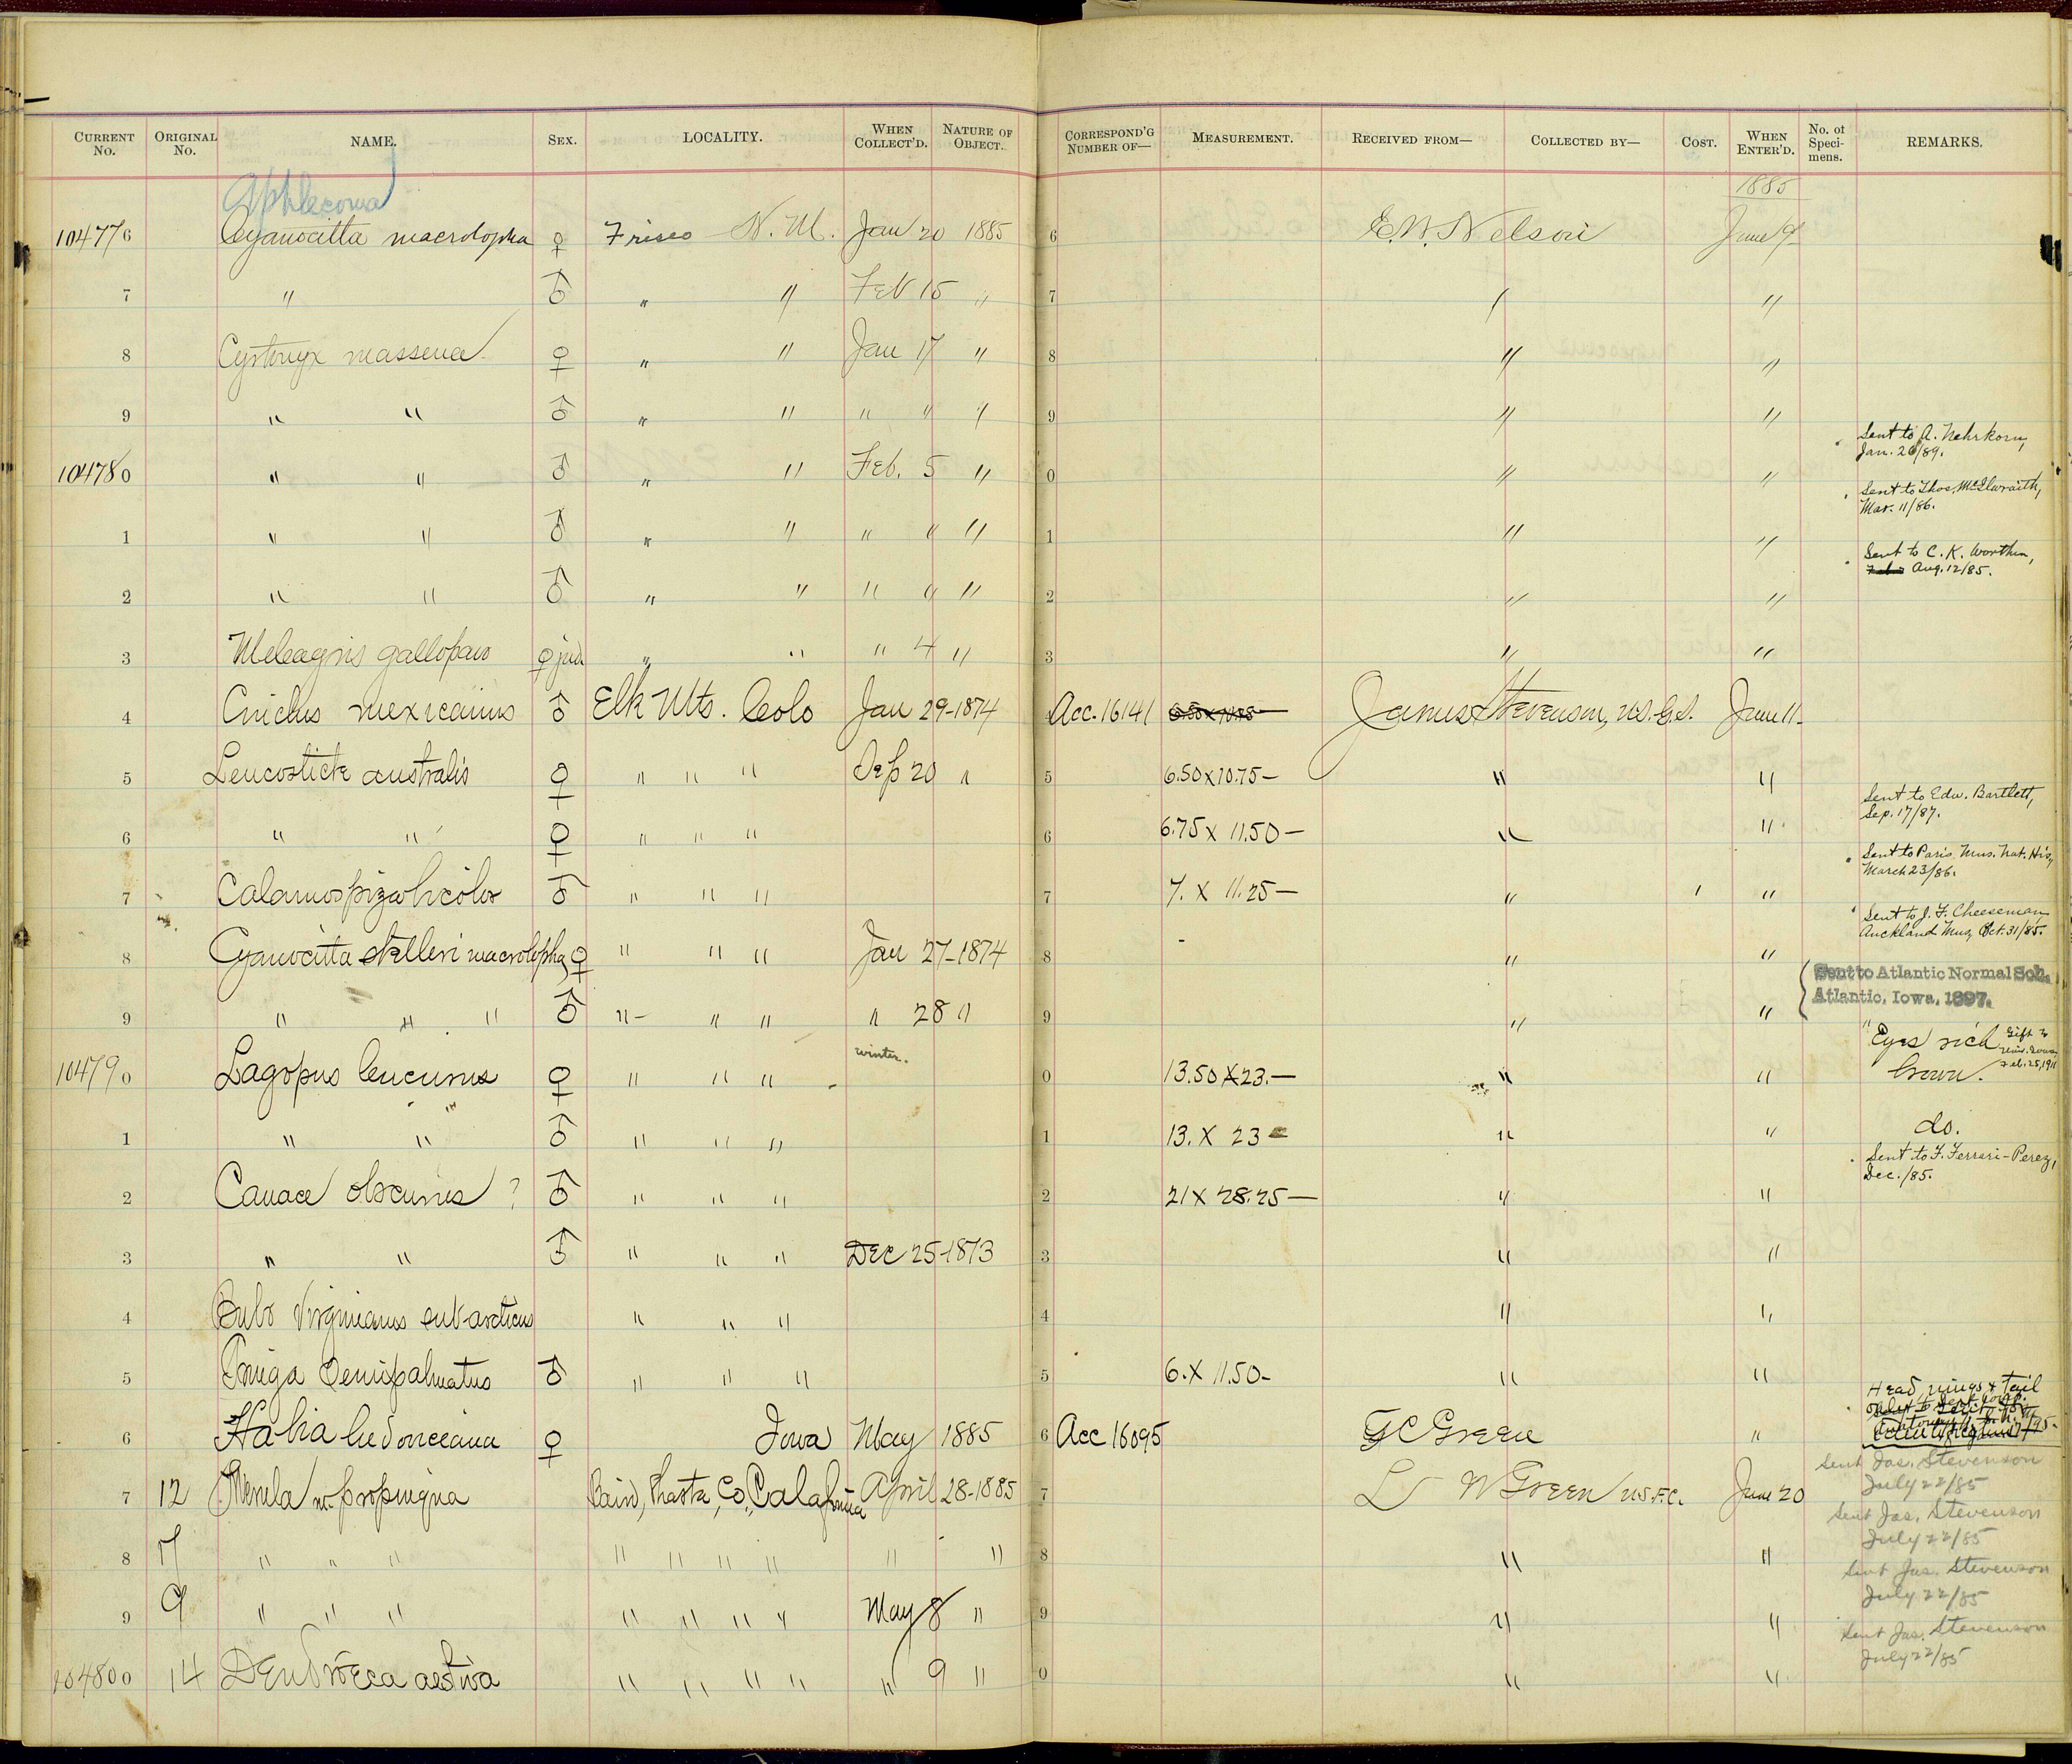 CURRENT No. ORIGINAL No. NAME. SEX. LOCALITY. WHEN COLLECT'D. NATURE OF OBJECT. CORRESPOND'G NUMBER OF— MEASUREMENT. RECEIVED FROM— COLLECTED BY— COST. WHEN ENTER'D. No. of Specimens. REMARKS.
1885
Aphlecoma
104776 Cyanocitta macrolopha ♀ Frisco N. M. Jan 20 1885 6 E. W. Nelson June 9
7 " ♂ " " Feb 15 " 7 " "
8 Cyrtonyx massena ♀ " " Jan 17 " 8 " "
9 " " ♂ " " " " " 9 " "
Sent to A. Nehrkorn, Jan. 26/89.
104780 " " ♂ " " Feb. 5 " 0 " "
Sent to Thos. McIlwraith, Mar. 11/86.
1 " " ♂ " " " " " 1 " "
Sent to C. K. Worthen, Aug. 12/85.
2 " " ♂ " " " " " 2 " "
3 Meleagris gallopavo ♀ juv " " " 4 " 3 " "
4 Cinclus mexicanus ♂ Elk Mts. Colo Jan 29-1874 Acc. 16141 James Stevenson, U.S.G.S. June 11
5 Leucosticte australis ♀ " " " Sep 20 " 5 6.50 x 10.75 — " "
Sent to Edw. Bartlett, Sep. 17/87.
6 " " ♀ " " " 6 6.75 x 11.50 — " "
Sent to Paris Mus. Nat. His, March 23/86.
7 Calamospiza bicolor ♂ " " " 7 7. x 11.25 — " "
Sent to J. F. Cheeseman, Auckland Mus, Oct. 31/85.
8 Cyanocitta stelleri macrolopha ♀ " " " Jan 27-1874 8 " "
Sent to Atlantic Normal Sch.
Atlantic, Iowa, 1897.
9 " " " ♂ " " " " 28 " 9 " "
winter.
104790 Lagopus leucurus ♀ " " " 0 13.50 x 23. — " " "Eyes rich brown. Gift to Univ. Iowa Feb. 25, 1911
1 " " ♂ " " " 1 13. x 23 — " " do.
Sent to F. Ferrari-Perez, Dec. /85.
2 Canace obscurus ? ♂ " " " 2 21 x 28.25 — " "
3 " " ♂ " " " Dec 25-1873 3 " "
4 Bubo Virginianus subarcticus " " " 4 " "
5 Tringa Semipalmatus ♂ " " " 5 6. x 11.50 - " "
Head, wings & Tail
6 Habia ludoviciana ♀ Iowa May 1885 6 Acc 16095 G C Green "
Sent Jas. Stevenson July 22/85
7 12 Merula m. propinqua Baird, Shasta, Co., Calafornia April 28-1885 7 L W Green U.S.F.C. June 20
Sent Jas. Stevenson July 22/85
8 17 " " " " " " " " " 8 " "
Sent Jas. Stevenson July 22/85
9 9 " " " " " " " May 8 " 9 " "
Sent Jas. Stevenson July 22/85
104800 14 Dendroeca aestiva " " " " " 9 " 0 " "